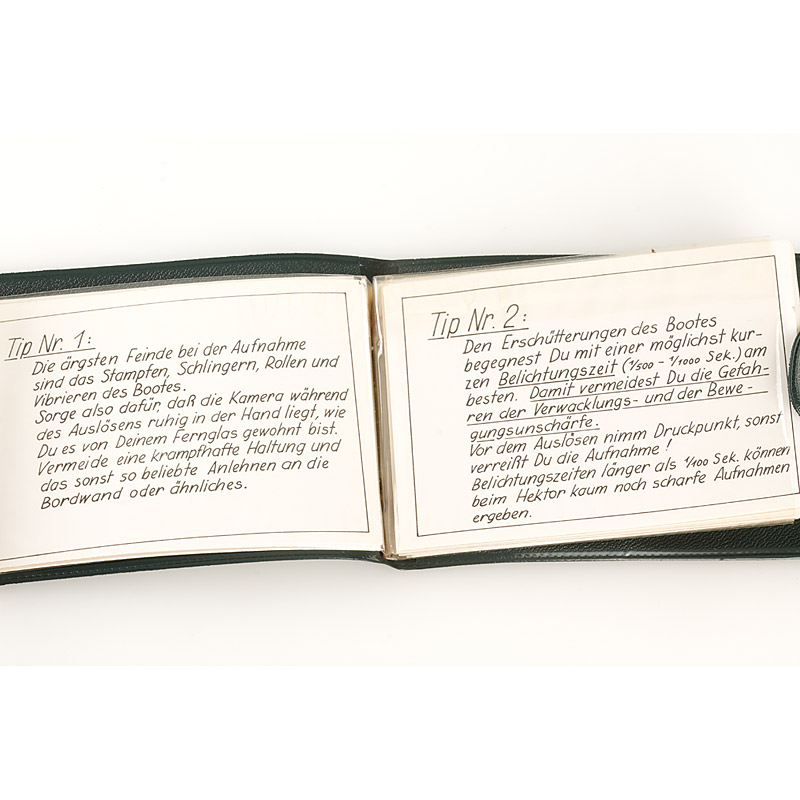 Tip Nr. 1:
Die ärgsten Feinde bei der Aufnahme
sind das Stampfen, Schlingern, Rollen und
Vibrieren des Bootes.
Sorge also dafür, daß die Kamera während
des Auslösens ruhig in der Hand liegt, wie
Du es von Deinem Fernglas gewohnt bist.
Vermeide eine krampfhafte Haltung und
das sonst so beliebte Anlehnen an die
Bordwand oder ähnliches.
Tip Nr. 2:
Den Erschütterungen des Bootes
begegnest Du mit einer möglichst kur-
zen Belichtungszeit (1/500 - 1/1000 Sek.) am
besten. Damit vermeidest Du die Gefah-
ren der Verwacklungs- und der Bewe-
gungsunschärfe.
Vor dem Auslösen nimm Druckpunkt, sonst
verreißt Du die Aufnahme!
Belichtungszeiten länger als 1/100 Sek. können
beim Hektor kaum noch scharfe Aufnahmen
ergeben.